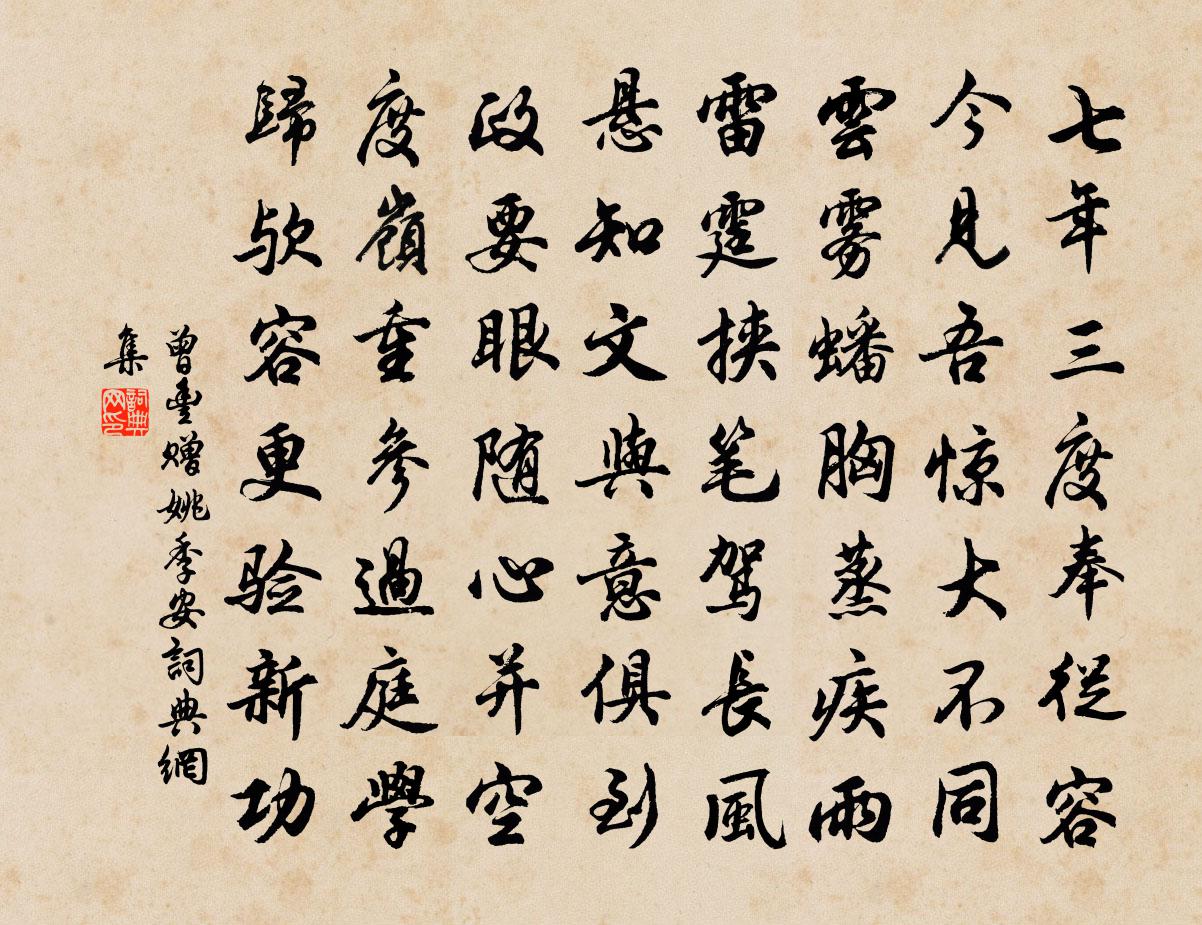 七年三度奉從容
今見吾惊大不同
雲雾蟠胸蒸疾雨
雷霆挾笔駕長風
悬知文與意俱到
政要眼随心并空
度嶺重參過庭學
歸欤容更验新功
曾豐赠姚季安詞典網
集
詞典网印